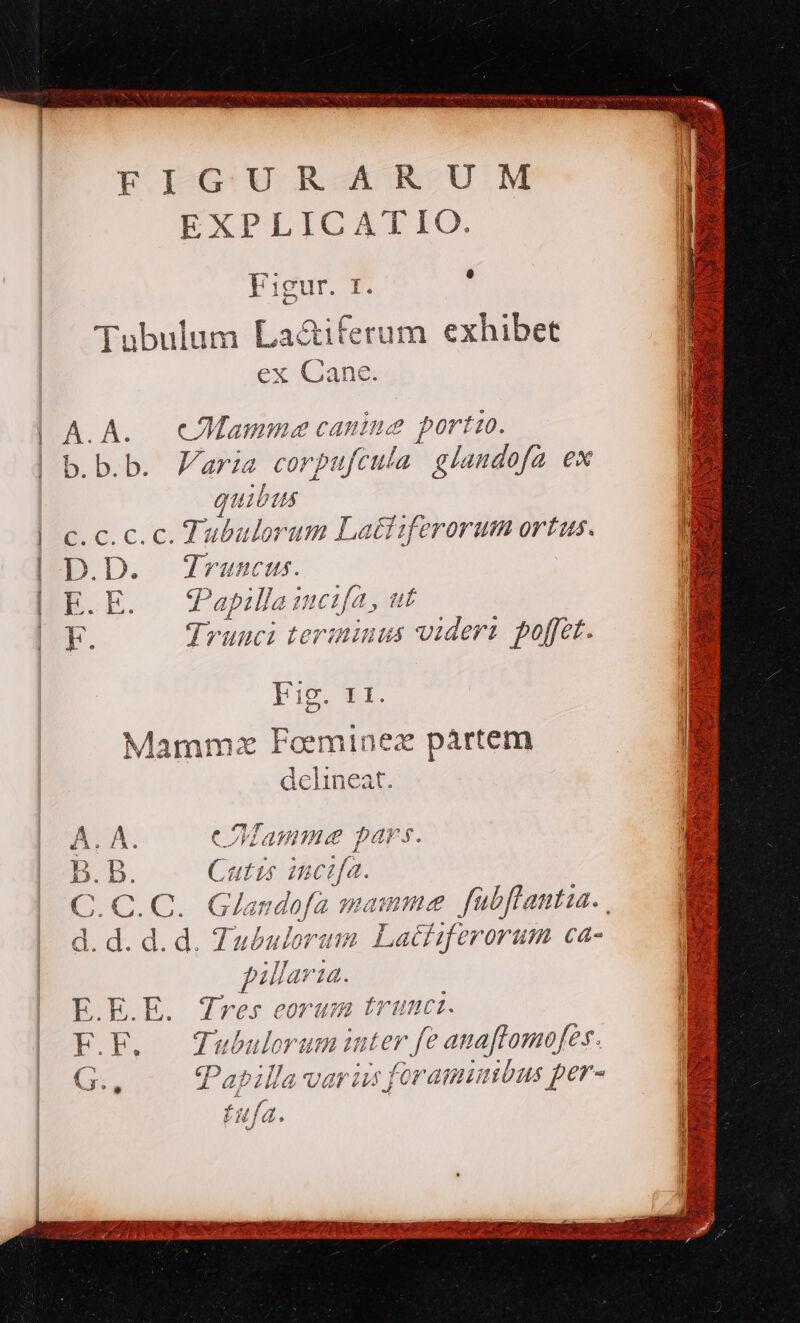 FIGURARUM
EXPLICATIO.
Figur. I.
Tubulum Lactiferum exhibet
ex Cane.
A.A. Mammæ caninæ portio.
b.b.b. Varia corpuſcula glandoſa ex
quibus
c.c.c.c. Tubulorum Lactiferorum ortus.
D.D. Truncus.
E.E. Papilla inciſa, ut
F. Trunci terminus videri poſſet.
Fig. II.
Mammæ Fœmineæ partem
delineat.
A.A. Mammæ pars.
B.B. Cutis inciſa.
C.C.C. Glandoſa mammæ ſubſtantia.
d.d.d.d. Tubulorum Lactiferorum ca-
pillaria.
E.E.E. Tres eorum trunci.
F.F. Tubulorum inter ſe anaſtomoſes.
G., Papilla variis foraminibus per-
tuſa.